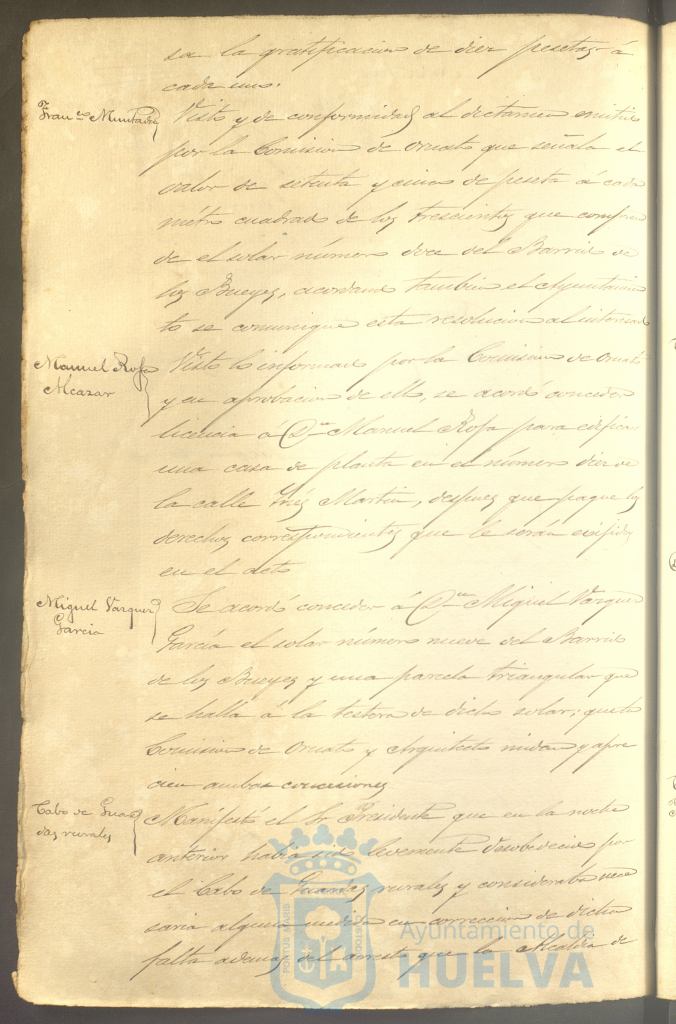 sa la gratificacion de diez pesetas á
cada uno.
Franco Muntadas
Visto y de conformidad al dictamen emitido
por la Comision de Ornato que señala el
valor de setenta y cinco de peseta á cada
métro cuadrado de los trescientos que compren
de el solar número doce del Barrio de
los Bueyes, acordando tambien el Ayuntamien
to se comunique esta resolucion al interesado
Manuel Rofa
Alcazar
Visto lo informado por la Comision de Ornato
y en aprobacion de ello, se acordó conceder
licencia a Dn Manuel Rofa para edificar
una casa de planta en el número diez de
la calle Inés Martin, despues que pague los
derechos correspondientes que le serán exijidos
en el acto
Miguel Vazquez
Garcia
Se acordó conceder á Dn Miguel Vazquez
García el solar número nueve del Barrio
de los Bueyes y una parcela triangular que
se halla á la testera de dicho solar; que la
Comision de Ornato y Arquitecto midan y apre
cien ambas concesiones
Cabo de Guar
das rurales
Manifestó el Sr Presidente que en la noche
anterior habia sido levemente desobedecido por
el Cabo de Guardas rurales y consideraba nece
saria alguna medida en correccion de dicha
falta ademas del arresto que la Alcaldía de
PORTUS MARIS
CUSTODIA
Ayuntamiento de
HUELVA